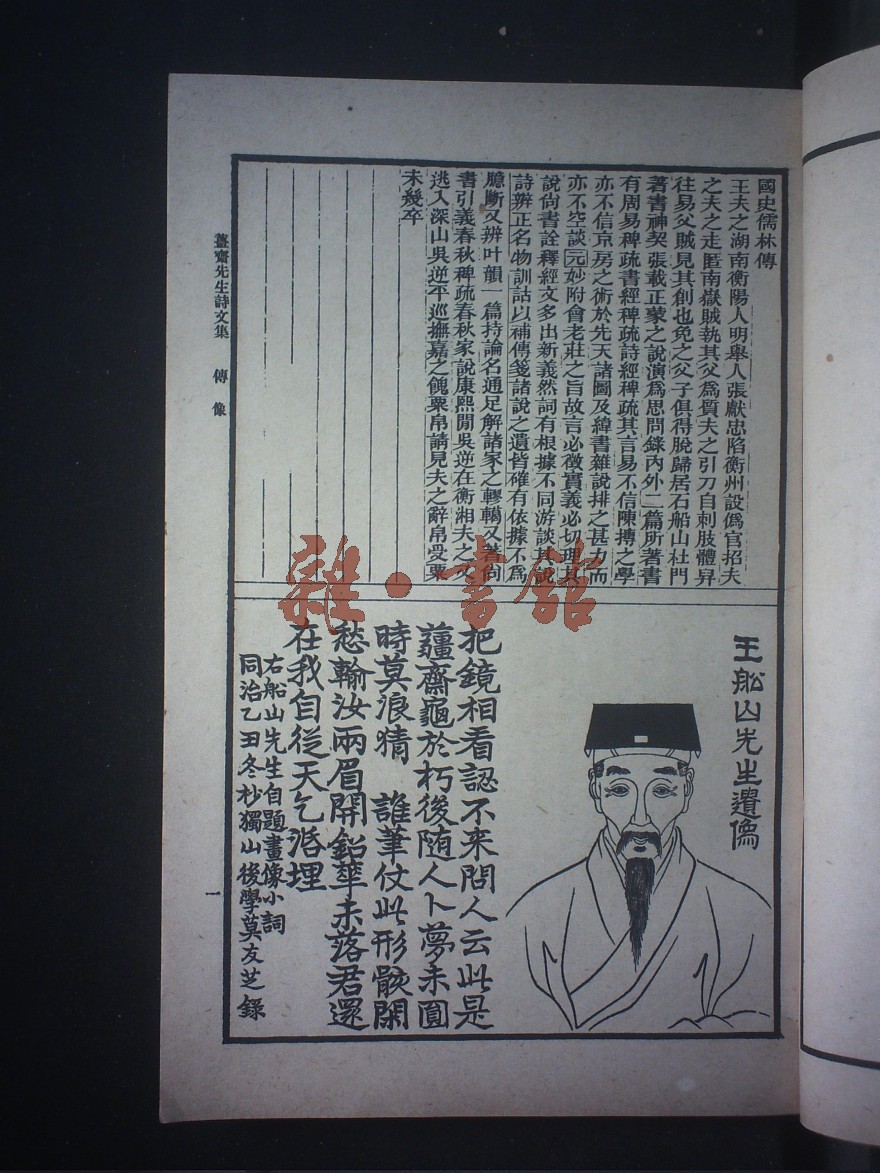 國史儒林傳
王夫之湖南衡陽人明舉人張獻忠陷衡州設僞官招夫
之夫之走匿南嶽賊執其父爲質夫之引刀自刺肢體舁
往易父賊見其創也免之父子俱得脫歸居石船山杜門
著書神契張載正蒙之說演爲思問錄內外二篇所著書
有周易稗疏書經稗疏詩經稗疏其言易不信陳摶之學
亦不信京房之術於先天諸圖及緯書雜說排之甚力而
亦不空談元妙附會老莊之旨故言必徵實義必切理其
說尙書詮釋經文多出新義然詞有根據不同游談其說
詩辨正名物訓詁以補傳箋諸說之遺皆確有依據不爲
臆斷又辨叶韻一篇持論名通足解諸家之轇轕又著尙
書引義春秋稗疏春秋家說康熙閒吳逆在衡湘夫之又
逃入深山吳逆平巡撫嘉之餽粟帛請見夫之辭帛受粟
未幾卒
王船山先生遺像
把鏡相看認不来問人云此是
薑齋龜於朽後随人卜夢未圓
時莫浪猜 誰筆仗此形骸閑
愁輸汝兩眉開鉛華未落君還
在我自從天乞活埋
右船山先生自題畫像小詞
同治乙丑冬杪獨山後學莫友芝錄
薑齋先生詩文集 傳 像 一
雜·書館